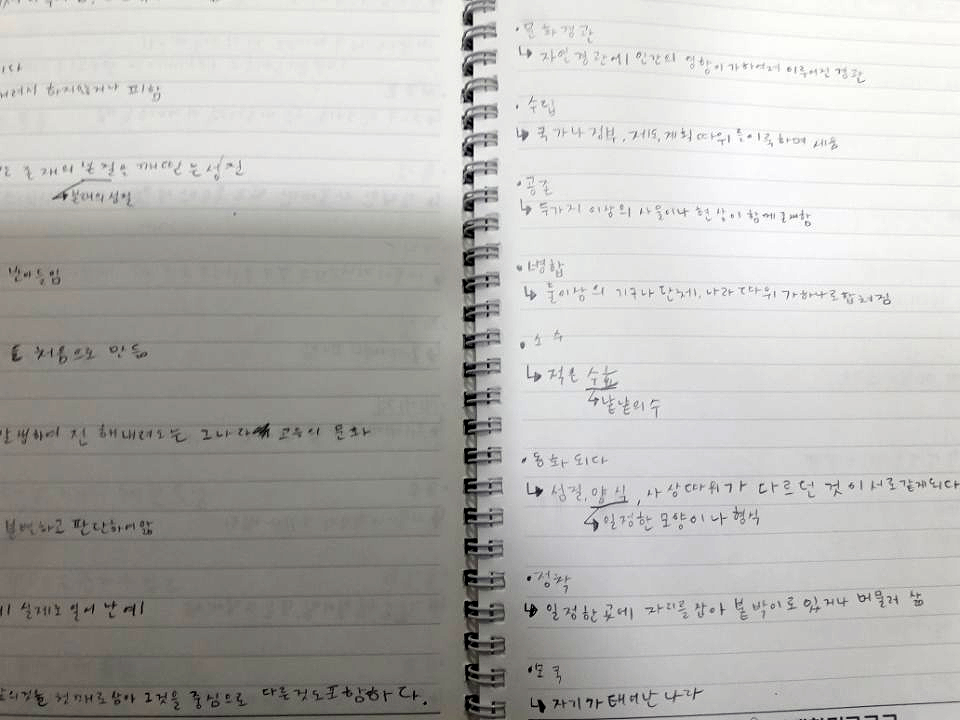 하지않거나 피함
존재의 본질을 깨닫는 성질
본래의 성질
받아들임
처음으로 만듦
전해내려오는 그나라 고유의 문화
분변하고 판단하여 앎
실제로 일어난 예
것을 첫째로 삼아 그것을 중심으로 다른것도 포함하다.
·문화경관
↳ 자연경관에 인간의 영향이 가하여져 이루어진 경관
·수립
↳ 국가나 정부, 제도, 계획 따위를 이룩하며 세움
·공존
↳ 두가지 이상의 사물이나 현상이 함께 존재함
·병합
↳ 둘이상의 기구나 단체, 나라 따위가 하나로 합쳐짐
·소수
↳ 적은 수효
↳ 낱낱의 수
·동화되다
↳ 성질, 양식, 사상따위가 다르던 것이 서로같게되다
↳ 일정한 모양이나 형식
·정착
↳ 일정한 곳에 자리를 잡아 붙박이로 있거나 머물러 삶
·모국
↳ 자기가 태어난 나라